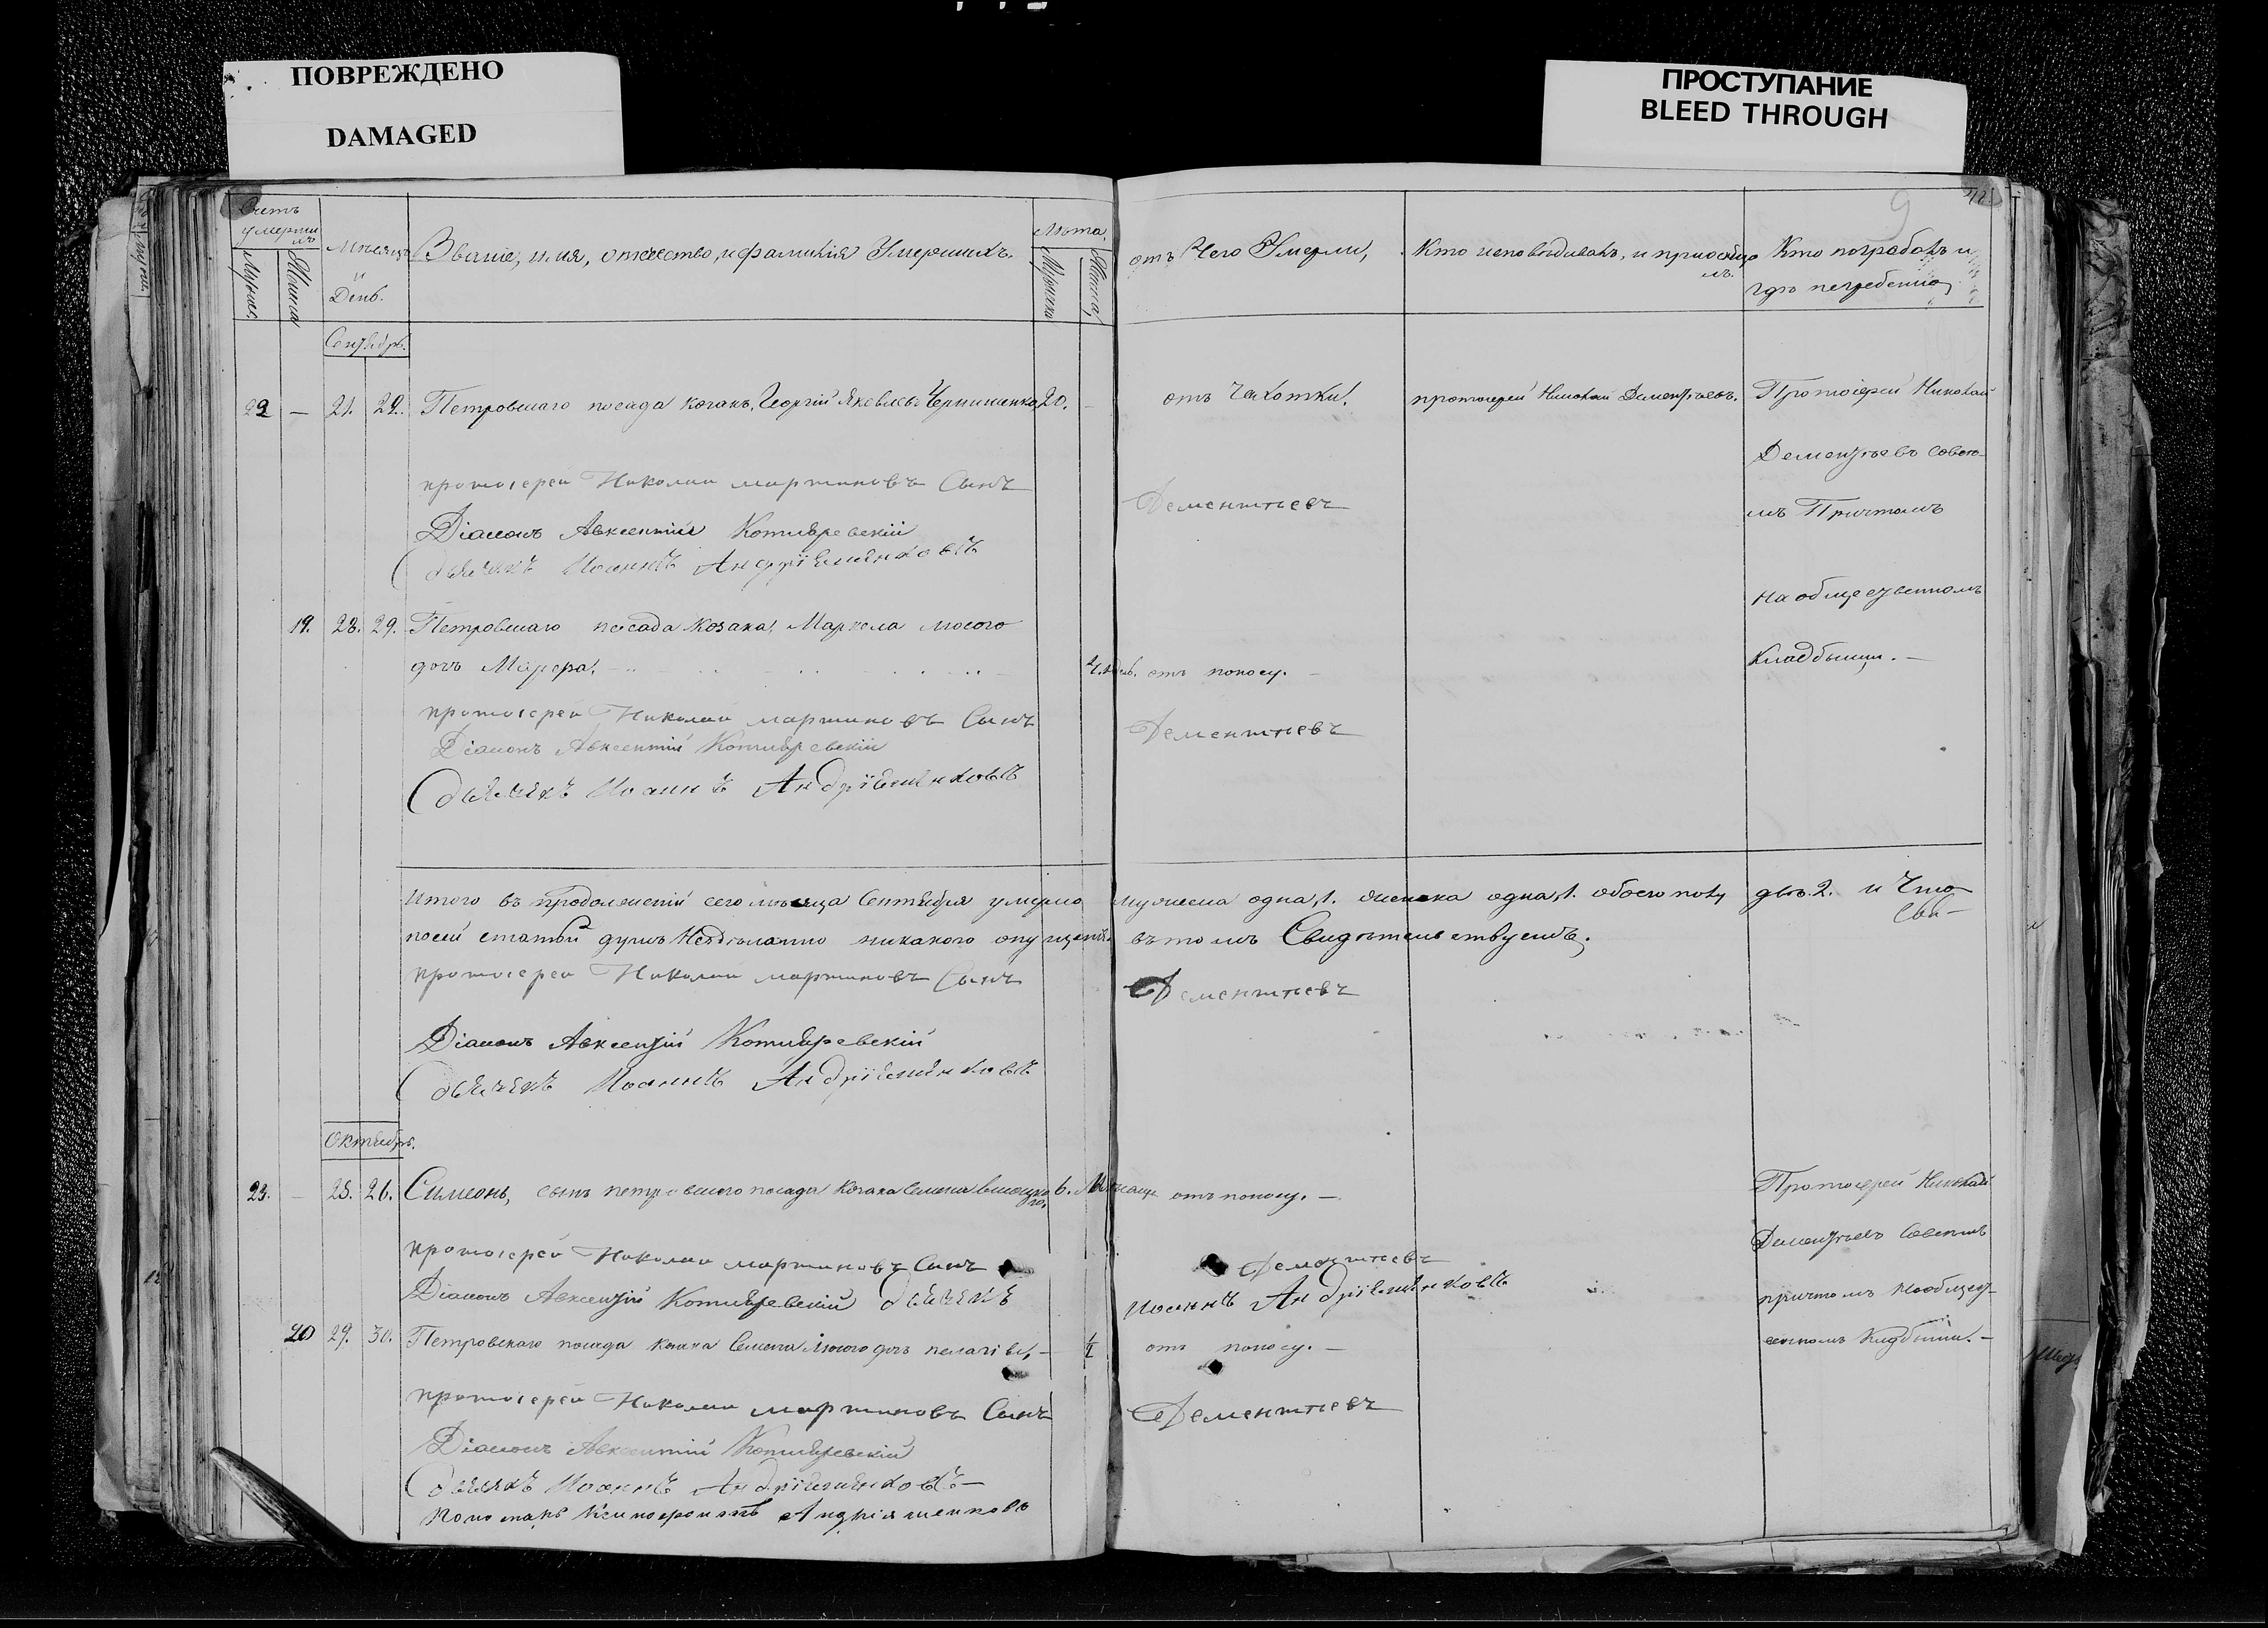 ПОВРЕЖДЕНО
DAMAGED
ПРОСТУПАНИЕ
BLEED THROUGH
9
Счетъ
умерши
хъ
Мужес.
Женска
Мѣсяцъ
и
День.
Званіе, имя, отчество, и фамилія Умершихъ.
Лѣта.
Мужска
Женска,
отъ Чего Умерли,
Кто исповѣдывалъ, и приобща
лъ.
Кто погребалъ и
гдѣ погребенно,
Сентябрь.
22 — 21. 22. Петровскаго посада козакъ, Георгій Яковлевъ Чернишенко 20. — отъ Чахотки. протоіерей Николай Дементьевъ. Протоіерей Николай
Дементьевъ совсѣ-
мъ Причтомъ
на общественномъ
Кладбыщи. —
протоіерей Николай мартиновъ Сынъ Дементіевъ
Діаконъ Авксентій Котляревскій
дьячекъ Иоаннъ Андріяшенковъ
19. 28. 29. Петровскаго посада козака, Маркела лютого
дочь Марфа, 4. нед. отъ поносу. —
протоіерей Николай мартиновъ Сынъ Дементіевъ
Діаконъ Авксентій Котляревскій
дьячекъ Иоаннъ Андріяшенковъ
Итого въ продолженіи сего мѣсяца Сентября умерло мужеска одна, 1. женска одна, 1. обоего полу двѣ. 2. и Что
посей статьи душъ Нездѣланно никакого опущенія. въ томъ Свидѣтельствуемъ.
протоіерей Николай мартиновъ Сынъ Дементіевъ
Діаконъ Авксентій Котляревскій
дьячекъ Иоаннъ Андріяшенковъ
Октябрь.
23. — 25. 26. Симеонъ, сынъ петровского посада козака Семена 6. Мѣсяца отъ поносу. — Протоіерей Николай
Дементьевъ Совсемъ
причтомъ наобщест-
венномъ Кладбыщи. —
протоіерей Николай мартиновъ Сынъ Дементіевъ
Діаконъ Авксентій Котляревскій дьячекъ Иоаннъ Андріяшенковъ
20 29. 30. Петровскаго посада козака Семена Лютого дочь пелагія, — 1/2 отъ поносу. —
протоіерей Николай мартиновъ Сынъ Дементіевъ
Діаконъ Авксентій Котляревскій
дьячекъ Иоаннъ Андріяшенковъ —
Пономарь Ксенофонтъ Андріяшенковъ